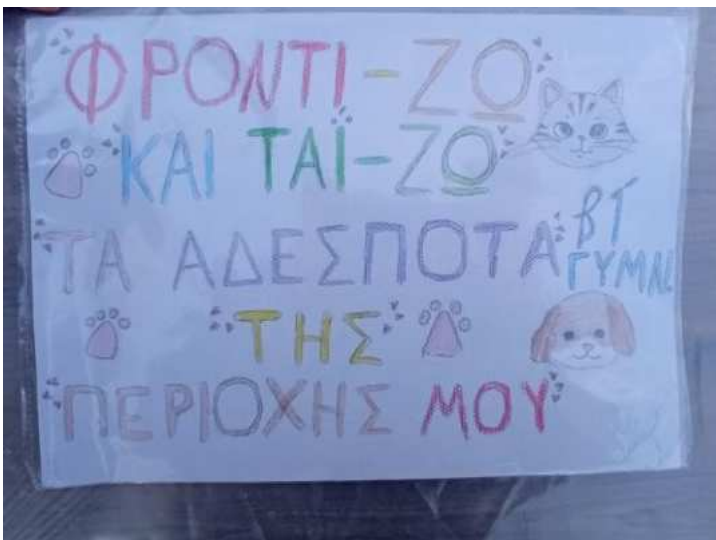 ΦΡΟΝΤΙ-ΖΩ
ΚΑΙ ΤΑΪ-ΖΩ
ΤΑ ΑΔΕΣΠΟΤΑ
ΒΓ
ΓΥΜΝ
ΤΗΣ
ΠΕΡΙΟΧΗΣ ΜΟΥ